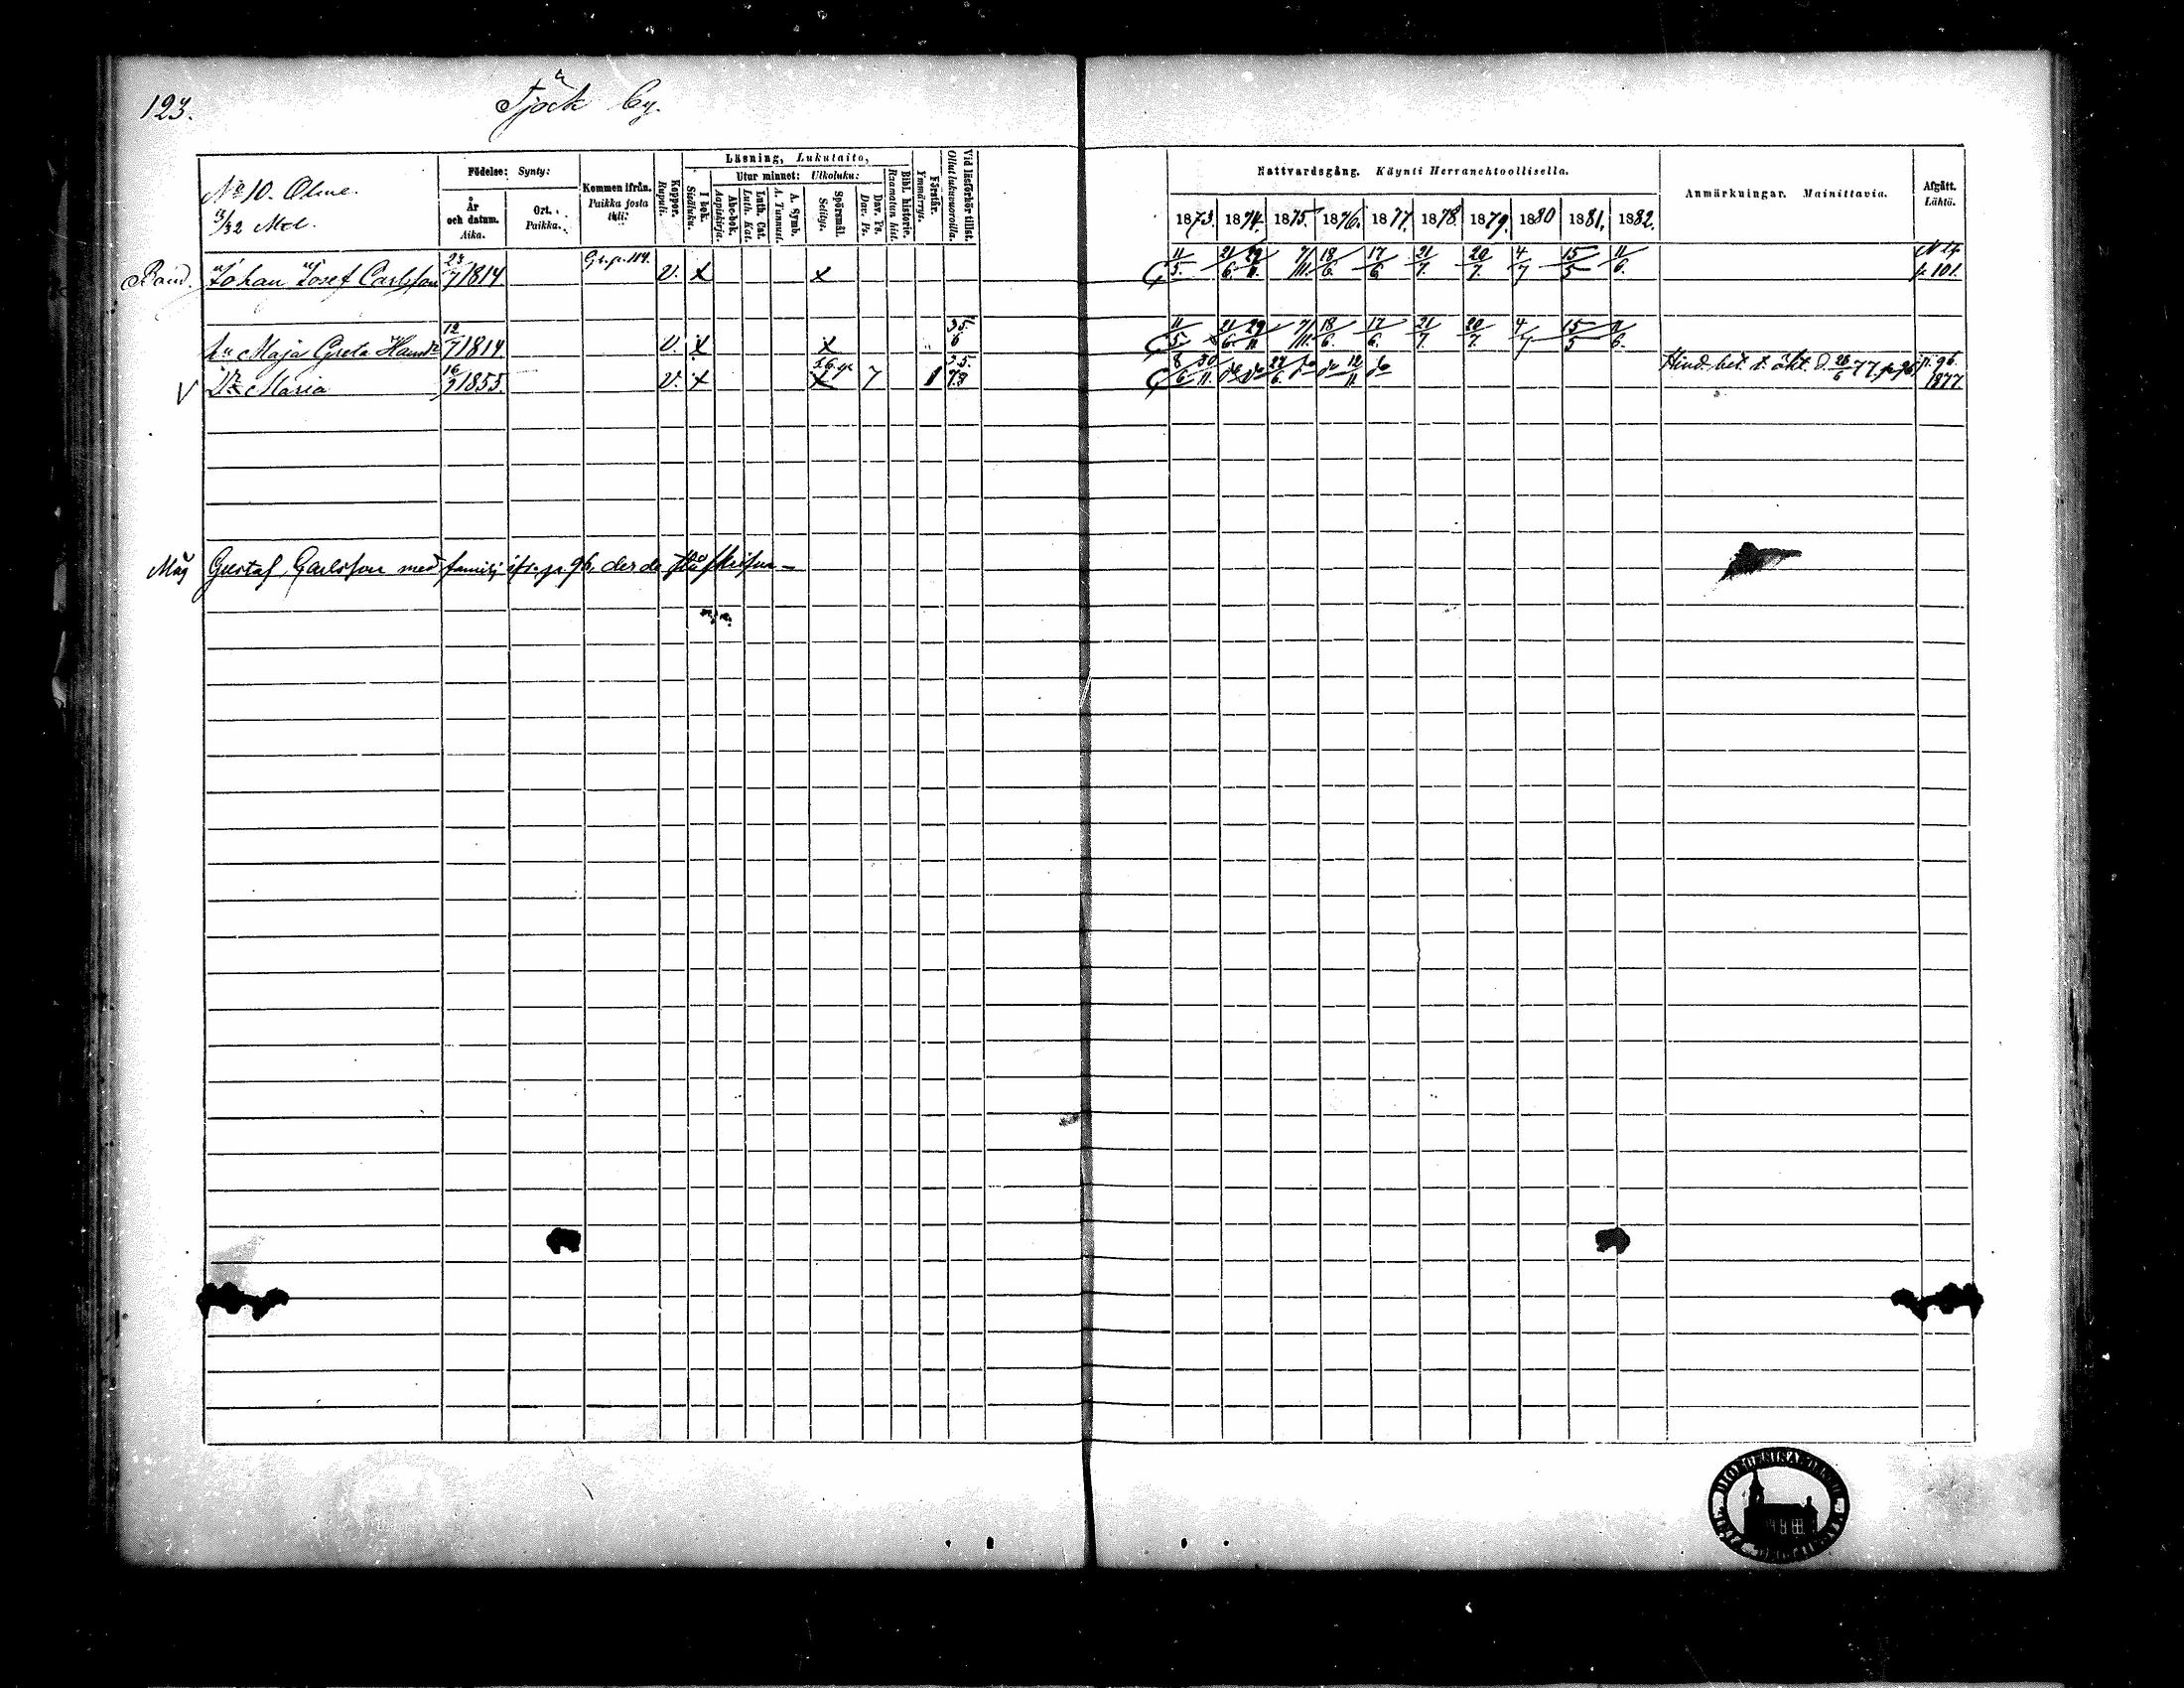 123.
Tjöck by.
No 10. Ölme.
3/32 Mtl.
Födelse: Synty:
År och datum. Aika.
Ort. Paikka.
Kommen ifrån. Paikka josta tuli:
Koppor. Rupuli.
Läsning, Lukutaito,
I bok. Sisäluku.
Utur minnet: Ulkoluku:
Abc-bok. Aapiskirja.
Luth. Cat. Luth. Kat.
A. Symb. A. Tunnust.
Spörsmål. Selitys.
Dav. Ps. Dav. Ps.
Bibl. historie. Raamatun hist.
Förstår. Ymmärrys.
Vid läsförhör tillst. Ollut lukuvuoroilla.
Nattvardsgång. Käynti Herranehtoollisella.
1873. 1874. 1875. 1876. 1877. 1878. 1879. 1880 1881. 1882.
Anmärkningar. Mainittavia.
Afgått. Lähtö.
Bond. Johan Josef Carlsson 23/7 1814. Gr. p. 114. V. x x 11/5. 21/6 29/11 7/11. 18/6. 17/6 21/7. 20/7. 4/7 15/5 11/6. p. 101.
hu Maja Greta 12/7 1814 V. x x 35. 6 11/5 21/6 29/11 7/11. 18/6. 17/6. 21/7. 20/7. 4/7 15/5 11/6.
V Dr Maria 16/2 1855. V. x x 7 1 25. 73 8/6 30/11. do do 27/6. do do 12/11 do Hind. bet. t. äkt. d. 26/6 77. p. 96. p. 96. 1877
Måg Gustaf Carlsson med familj ifr. p. 96, der de